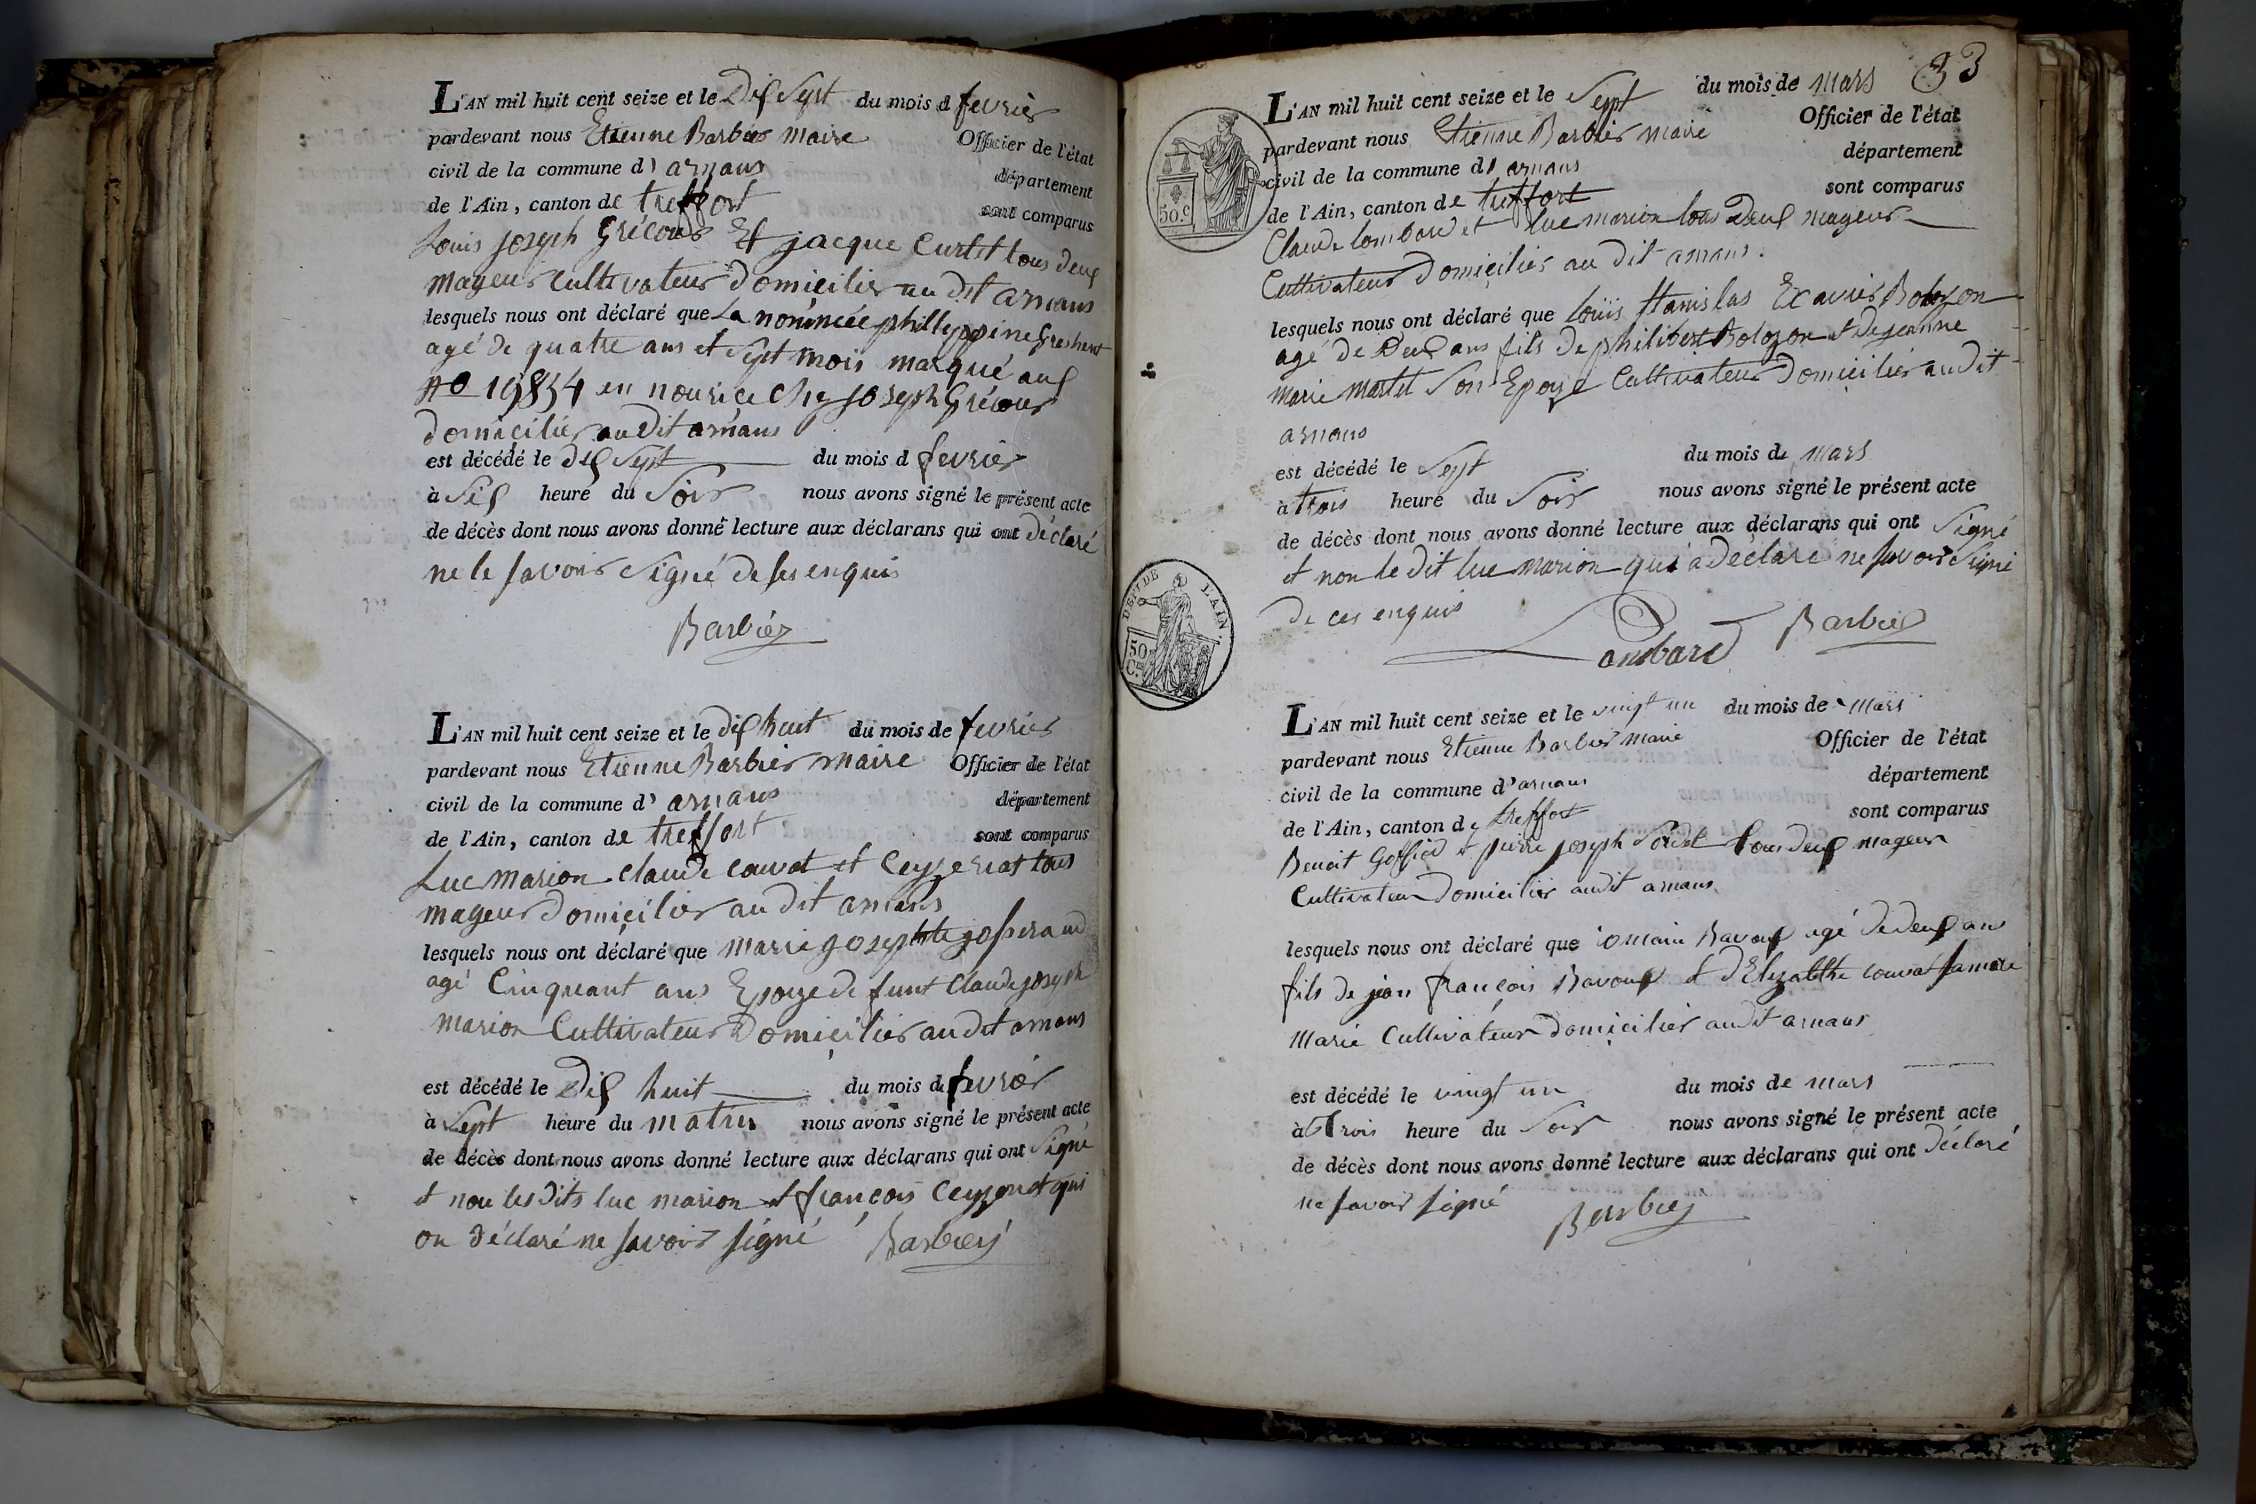 L'AN mil huit cent seize et le Dix Sept du mois d fevrier
pardevant nous Etienne Barbier maire Officier de l'état
civil de la commune d' arnans département
de l'Ain, canton de treffort sont comparus
Louis joseph Grécour Et jacque Curtet tous deux
mageur cultivateur domicilier au dit arnans
lesquels nous ont déclaré que La nommée phillyppine
agé de quatre ans et Sept mois marqué aux
no 19854 en nourice che joseph Grécour
domicilier au dit arnans
est décédé le dix Sept du mois d fevrier
à Six heure du Soir nous avons signé le présent acte
de décès dont nous avons donné lecture aux déclarans qui ont déclaré
ne le savoir signé de ses enquis
Barbier
L'AN mil huit cent seize et le dix huit du mois de fevrier
pardevant nous Etienne Barbier maire Officier de l'état
civil de la commune d' arnans département
de l'Ain, canton de treffort sont comparus
Luc marion claude couvat et Ceyzeriat tous
mageur domicilier au dit arnans
lesquels nous ont déclaré que marie josephte josserand
agé Cinquant ans Epouze de funt Claude joseph
marion Cultivateur Domicilier au dit arnans
est décédé le Dix huit du mois de fevrier
à Sept heure du matin nous avons signé le présent acte
de décès dont nous avons donné lecture aux déclarans qui ont Signé
et non les dits luc marion et françois qui
on déclaré ne savoir signé Barbier
33
L'AN mil huit cent seize et le Sept du mois de mars
pardevant nous Etienne Barbier maire Officier de l'état
civil de la commune d' arnans département
de l'Ain, canton de treffort sont comparus
Claude lombard et luc marion tous deux mageur
Cultivateur Domicilier au dit arnans
lesquels nous ont déclaré que louis stanislas Exavier Bolozon
agé de Deux ans fils de philibert Bolozon et de jeanne
marie martel Son Epouze Cultivateur Domicilier au dit
arnans
est décédé le Sept du mois de mars
à trois heure du Soir nous avons signé le présent acte
de décès dont nous avons donné lecture aux déclarans qui ont Signé
et non le dit luc marion qui a déclaré ne savoir signé
de ces enquis
Lombard Barbier
50.c
DEPT. DE L'AIN.
50 C.
L'AN mil huit cent seize et le vingt un du mois de mars
pardevant nous Etienne Barbier maire Officier de l'état
civil de la commune d' arnans département
de l'Ain, canton de treffort sont comparus
Benoit et pierre joseph tous deux mageur
Cultivateur Domicilier audit arnans
lesquels nous ont déclaré que romain Bavoux agé de deux ans
fils de jean françois Bavoux et d'Elizabethe couvat
marié Cultivateur domicilier audit arnans
est décédé le vingt un du mois de mars
à Trois heure du Soir nous avons signé le présent acte
de décès dont nous avons donné lecture aux déclarans qui ont déclaré
ne savoir signé
Barbier